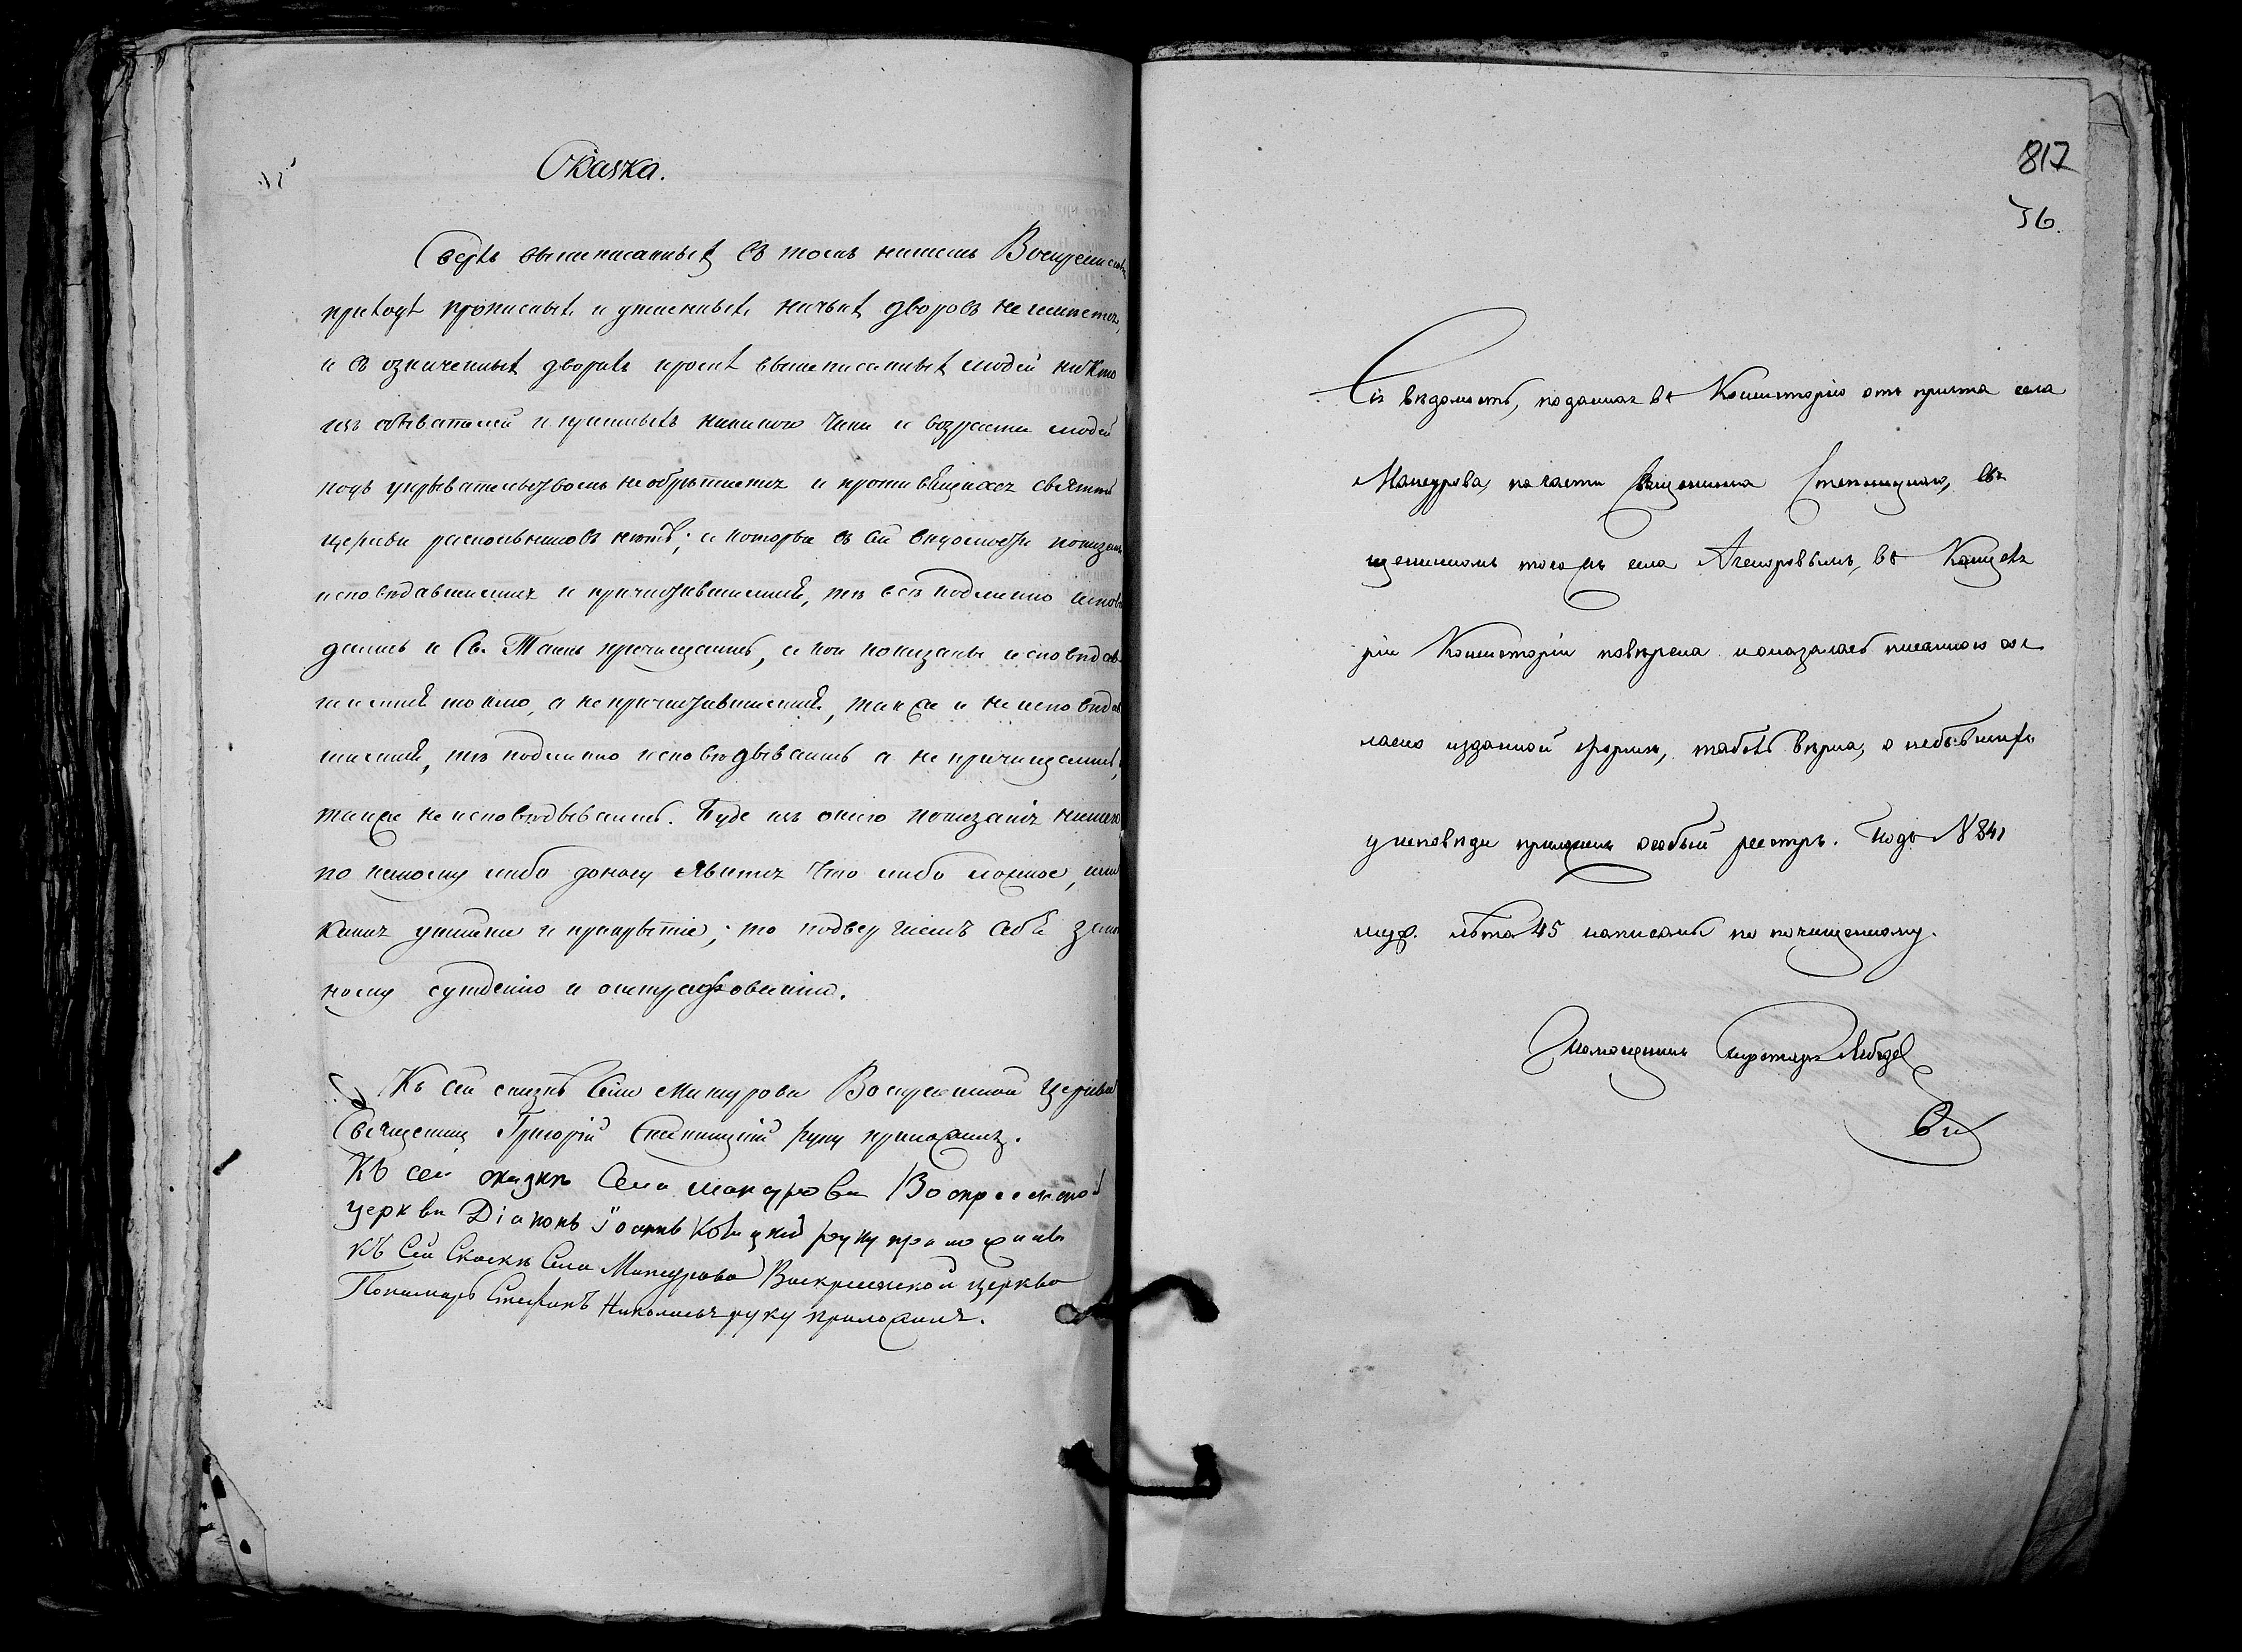 Сказка.
Сверхъ вышеписанныхъ въ томъ нашемъ Воскресенском
приходѣ прописныхъ и утаенныхъ ничьихъ дворовъ не имѣется,
и въ означенныхъ дворахъ кромѣ вышеписанныхъ людей никто
изъ обывателей и пришлыхъ никакого чина и возраста людей
подъ укрывательствомъ не обрѣтается и противящихся святой
церкви раскольниковъ нѣтъ; а которые въ сей вѣдомости показан
исповѣдавшимися и причастившимися, тѣ всѣ подлинно исповѣ
дались и Св. Таинъ причащались, а кои показаны исповѣдав
шимися токмо, а не причастившимися, также и не исповѣдав
шимися, тѣ подлинно исповѣдывались а не причащались,
также не исповѣдывались. Буде изъ онаго показанія нашего
по какому либо доносу явится что либо ложное, или
какая утайка и прикрытіе; то подвергаемъ себя закон
ному сужденію и оштрафованію.
Къ сей сказкѣ села Мансурова Воскресенской церкви
Священникъ Григорій руку приложилъ.
Къ сей сказкѣ Села мансурова Воскресенской
церкви Діаконъ Iоаннъ руку приложилъ
Къ Сей Скаскѣ Села Мансурова Воскресенской церкви
Пономарь Стефанъ Николаевъ руку приложилъ.
817
36.
Сія вѣдомость, поданная въ Консисторію отъ причта села
Мансурова, по части Священника
щенникомъ тогожъ села въ
ріи Консисторіи повѣрена и оказалась писанною со
ласно изданной формы, табель вѣрна, о небывшихъ
у исповѣди приложенъ особый реестръ. Подъ № 841
муж. лѣта 45 написаны по почищенному.
Помощникъ Секретаря Лебедев